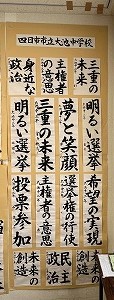 四日市市立大池中学校
三重の
未来
主権者
の意思
身近な
政治
明るい選挙
夢と笑顔
三重の未来
明るい選挙
希望の実現
選挙権の行使
主権者の意思
投票参加
未来の
創造
民主
政治
未来の
創造